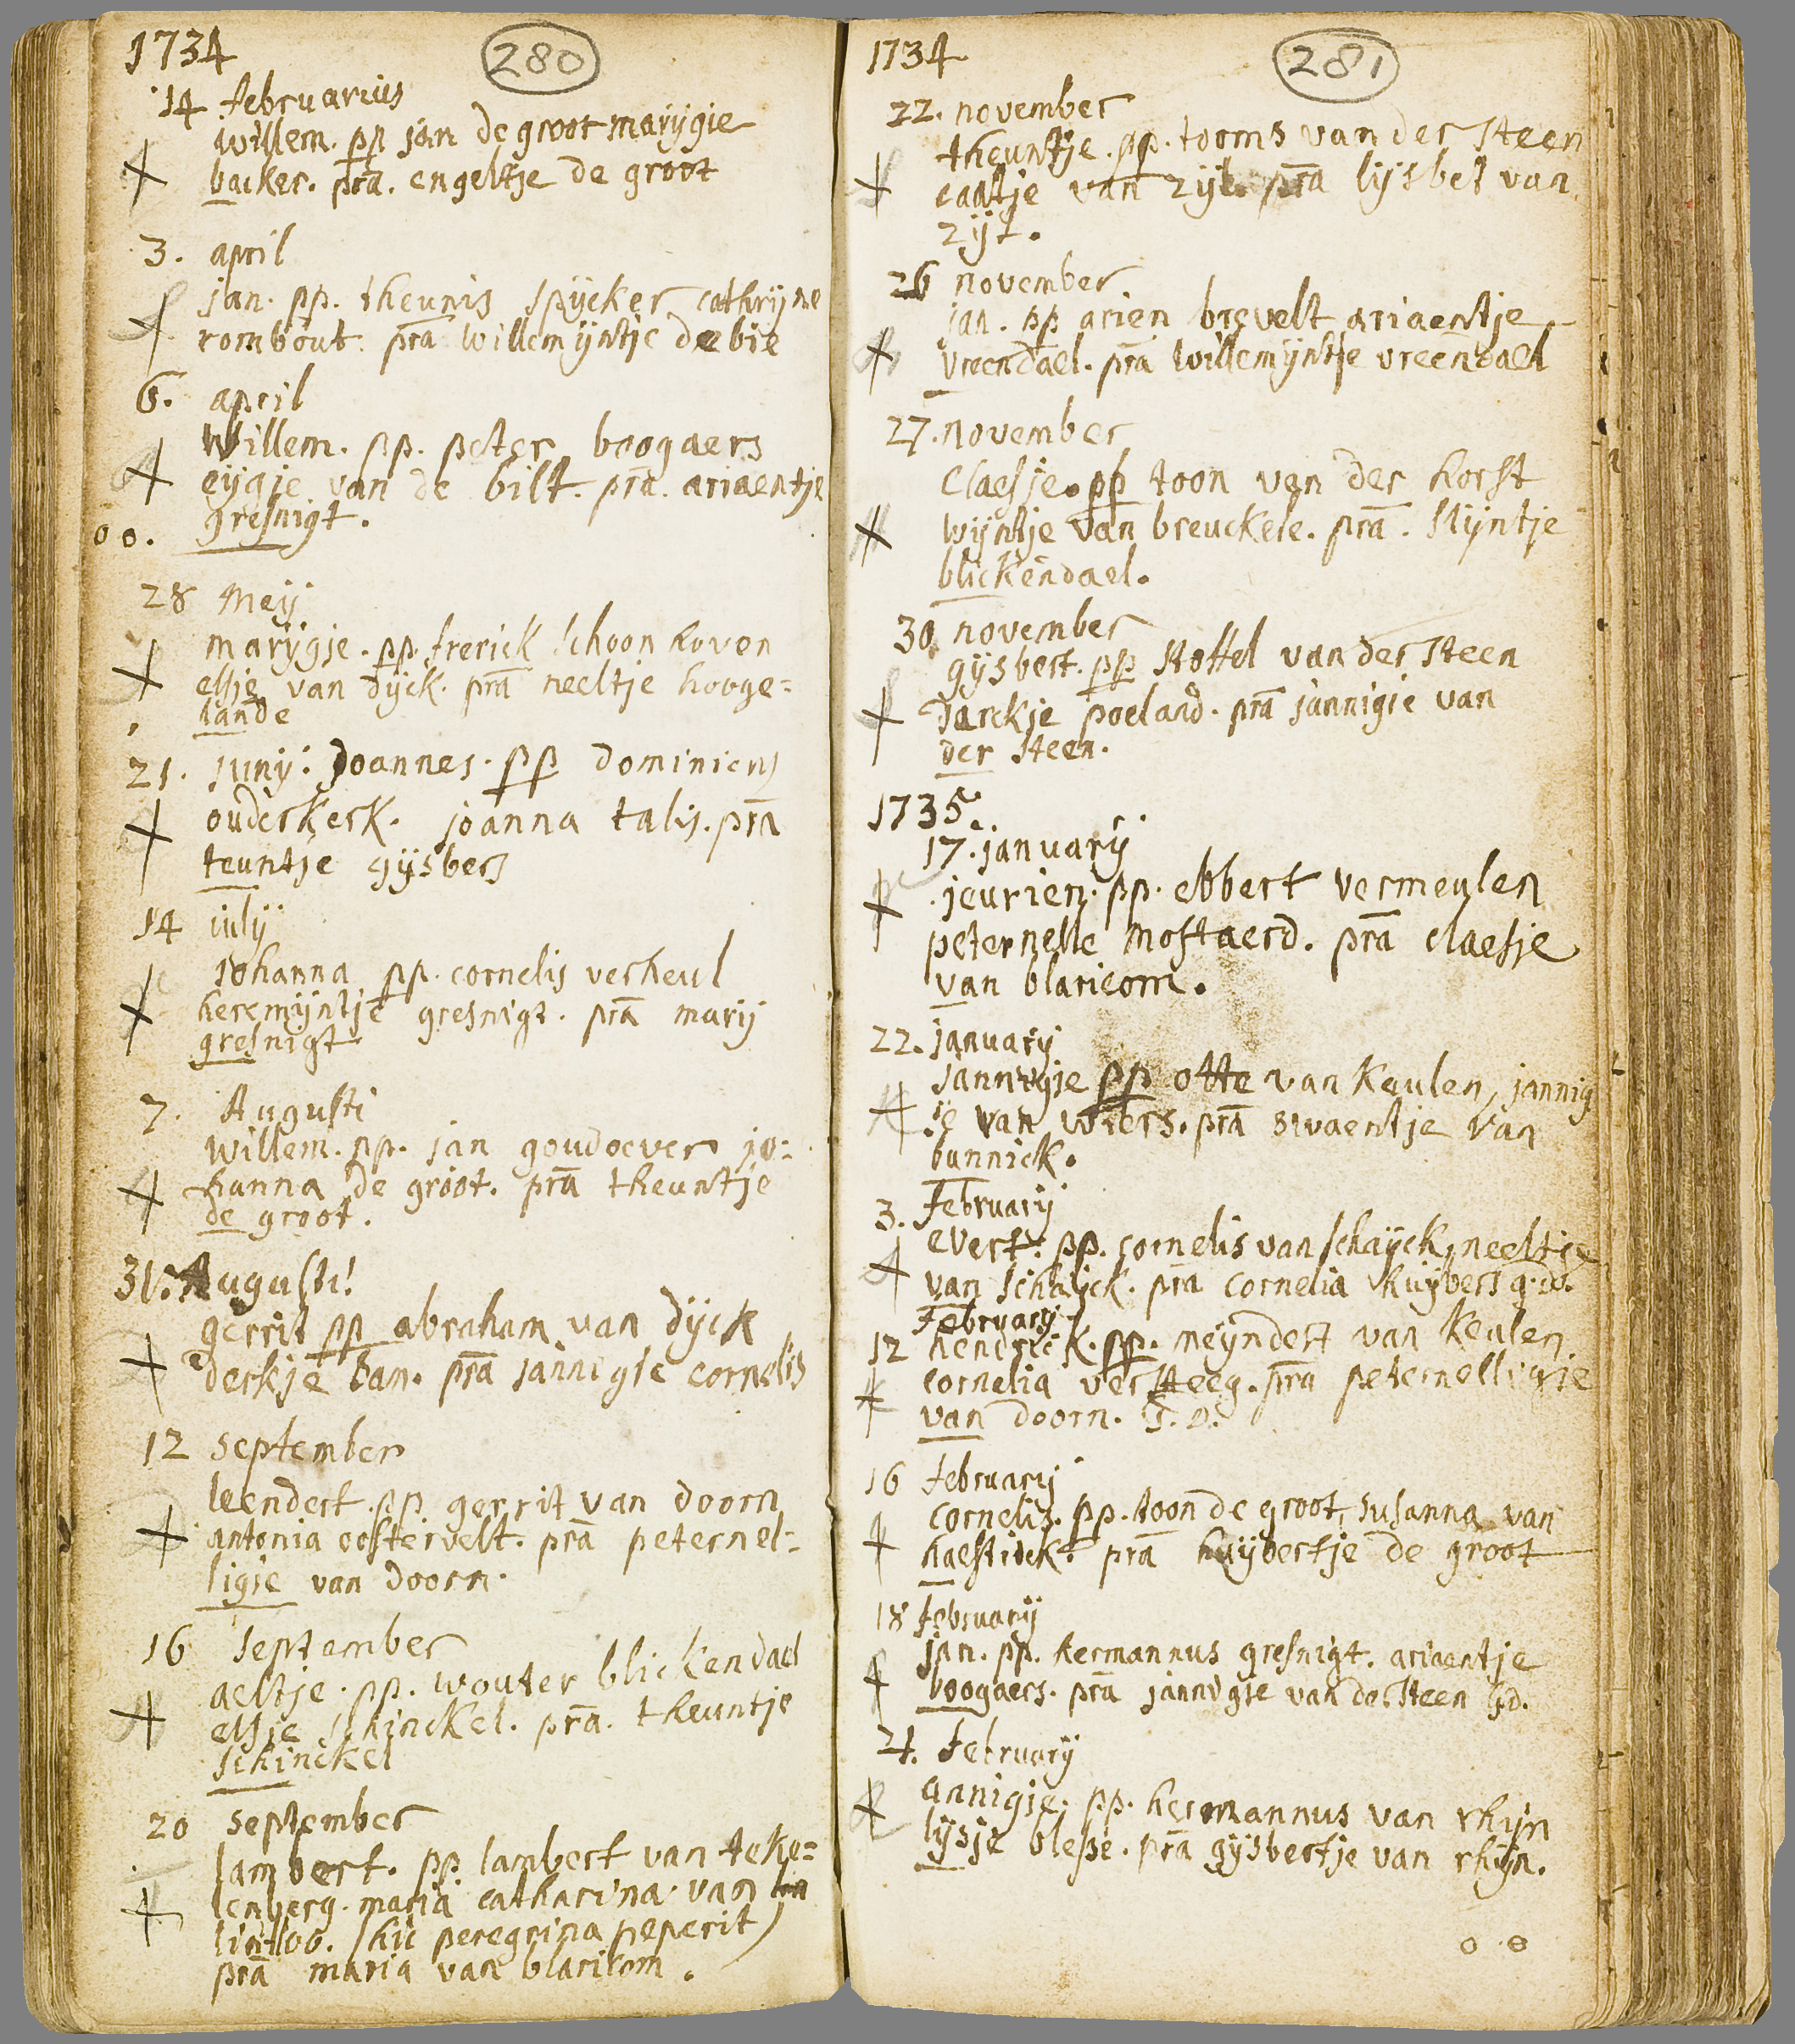 1734
280
14 februarius
willem. pp jan de groot marijgie
backer. prā. engeltje de groot
3. april
jan. pp. theunis spijcker cathrijne
rombout. prā willemijntje de bie
6. april
willem. pp. peter boogaers
eijgje van de bilt. prā. ariaentje
gresnigt.
oo.
28 Meij
marijgje. pp. frerick schoonhoven
elsje van dijck. prā neeltje hooge=
lande
21. junij: Joannes. pp dominicus
ouderkerk. joanna talis. prā
teuntje gijsbers
14 iulij
johanna pp. cornelis verheul
heremijntje gresnigt. prā marij
gresnigt
7. Augusti
willem. pp. jan goudoever jo=
hanna de groot. prā theuntje
de groot.
31. Augusti!
gerrit pp abraham van dijck
derkje tan. prā jannigie cornelis
12 september
leendert. pp. gerrit van doorn
antonia oostervelt. prā peternel=
ligie van doorn.
16 september
aeltje. pp. wouter blickendael
elsje schinckel. prā. theuntje
schinckel
20 september
lambert. pp. lambert van teke=
lenberg. maria catharina van
lintloo. (hic peregrina peperit)
prā maria van blaricom.
1734
281
22. november
theuntje. pp. tooms van der steen
ealtje van zijl. prā lijsbet van
zijl.
26 november
jan. pp arien brevelt ariaentje
vreendael. prā willemijntje vreendael
27. november
Claesje. pp toon van der horst
wijntje van breuckele. prā. stijntje
blickendael.
30. november
gijsbert. pp stoffel van der steen
Darckje poeland. prā jannigie van
der steen.
1735.
17. januarij
jeurien. pp. ebbert vermeulen
peternelle mostaerd. prā claesje
van blaricom.
22. januarij
jannigje pp otte van keulen, jannig
je van wiers. prā swaentje van
bunnick.
3. Februarij
evert. pp. cornelis van schaijck, neeltje
van schaijck. prā cornelia huijbers g.d.
Februarij
12 hendrick. pp. meijndert van keulen
cornelia versteeg. prā peternelligie
van doorn. G.D.
16 februarij
cornelis. pp. toon de groot, susanna van
haestreck. prā huijbertje de groot
18 februarij
jan. pp. hermannus gresnigt. ariaentje
boogaers. prā jannigie van der steen gd.
21. februarij
annigje. pp. hermannus van rhijn
lijsje blesse. prā gijsbertje van rhijn.
o o